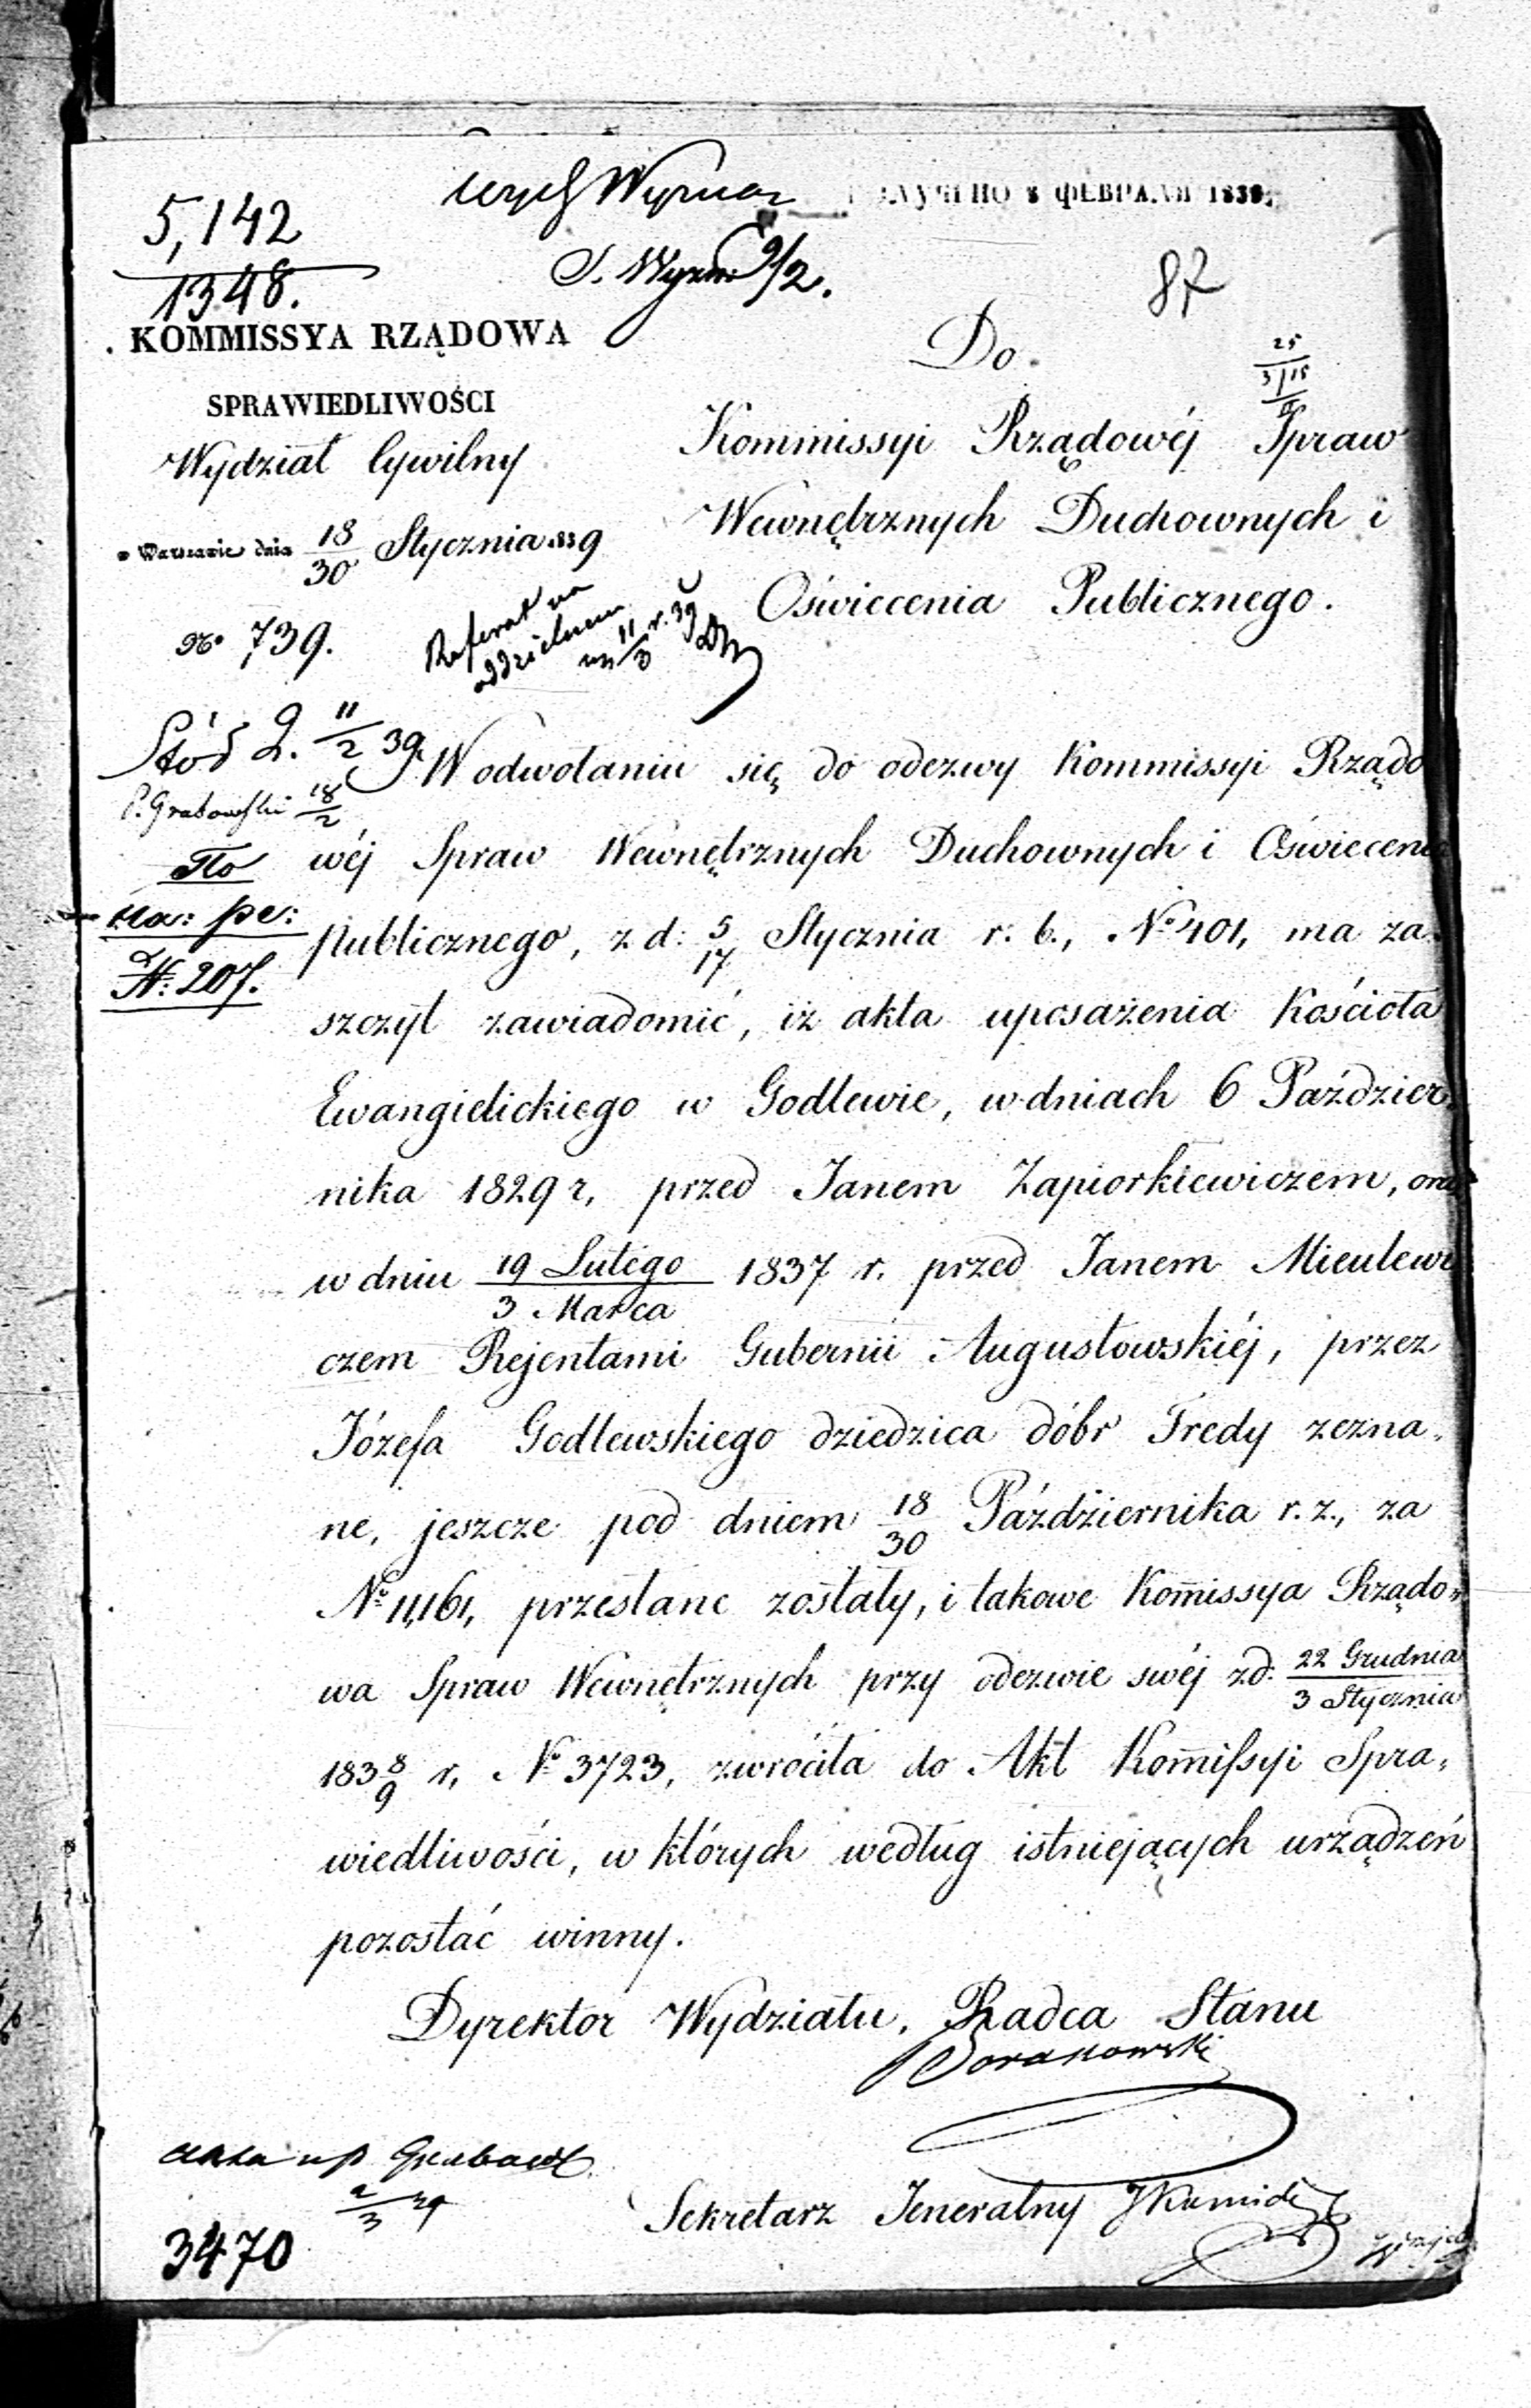 5,142
1348.
8 ФЕВРАЛЯ 1839.
9/2.
87
KOMMISSYA RZĄDOWA
SPRAWIEDLIWOŚCI
Wydział Cywilny
w Warszawie dnia 18/30 Stycznia 1839
No 739.
Do
25
Kommissyi Rządowéj Spraw
Wewnętrznych Duchownych i
Oświecenia Publicznego.
Referat na
oddzielnem
11/3 r. 39
11/2 39
P. Grabowski 18/2
N: 207.
W odwołaniu się do odezwy Kommissyi Rządo
wéj Spraw Wewnętrznych Duchownych i Oświecenia
publicznego, z d: 5/17 Stycznia r. b., No 401, ma za-
szczyt zawiadomić, iż akta uposażenia Kościoła
Ewangielickiego w Godlewie, w dniach 6 Paździer-
nika 1829 r, przed Janem Zapiorkiewiczem, oraz
w dniu 19 Lutego/3 Marca 1837 r. przed Janem Mieulewi
czem Rejentami Gubernii Augustowskiéj, przez
Józefa Godlewskiego dziedzica dóbr Fredy zezna-
ne, jeszcze pod dniem 18/30 Października r. z., za
No 11,161, przesłane zostały, i takowe Kom̄issya Rządo-
wa Spraw Wewnętrznych przy odezwie swéj z d. 22 Grudnia/3 Stycznia
1838/9 r, No 3723, zwróciła do Akt Kom̄issyi Spra-
wiedliwości, w których według istniejących urządzeń
pozostać winny.
Dyrektor Wydziału, Radca Stanu
Sekretarz Jeneralny
2/3 39
3470